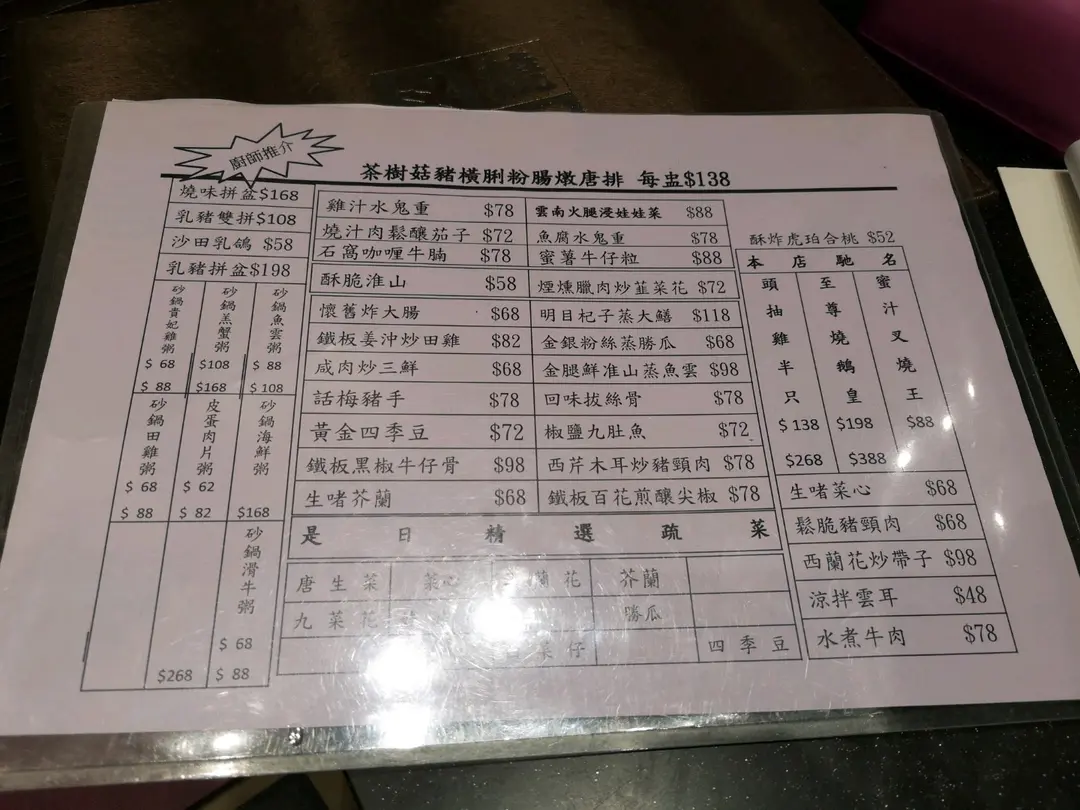 廚師推介
茶樹菇豬橫脷粉腸燉唐排 每盅$138
燒味拼盆$168
乳豬雙拼$108
沙田乳鴿 $58
乳豬拼盆$198
砂鍋貴妃雞粥 $68 $88
砂鍋羔蟹粥 $108 $168
砂鍋魚雲粥 $88 $108
砂鍋田雞粥 $68 $88
皮蛋肉片粥 $62 $82
砂鍋海鮮粥 $168
$268
砂鍋滑牛粥 $68 $88
雞汁水鬼重 $78
燒汁肉鬆釀茄子 $72
石窩咖喱牛腩 $78
酥脆淮山 $58
懷舊炸大腸 $68
鐵板姜沖炒田雞 $82
咸肉炒三鮮 $68
話梅豬手 $78
黃金四季豆 $72
鐵板黑椒牛仔骨 $98
生啫芥蘭 $68
雲南火腿浸娃娃菜 $88
魚腐水鬼重 $78
蜜薯牛仔粒 $88
煙燻臘肉炒韮菜花 $72
明目杞子蒸大鱔 $118
金銀粉絲蒸勝瓜 $68
金腿鮮准山蒸魚雲 $98
回味拔絲骨 $78
椒鹽九肚魚 $72
西芹木耳炒豬頸肉 $78
鐵板百花煎釀尖椒 $78
是日精選疏菜
唐生菜 菜心 蘭花 芥蘭
九菜花 勝瓜
菜仔 四季豆
酥炸虎珀合桃 $52
本店馳名
頭抽雞半只 $138 $268
至尊燒鵝皇 $198 $388
蜜汁叉燒王 $88
生啫菜心 $68
鬆脆豬頸肉 $68
西蘭花炒帶子 $98
涼拌雲耳 $48
水煮牛肉 $78